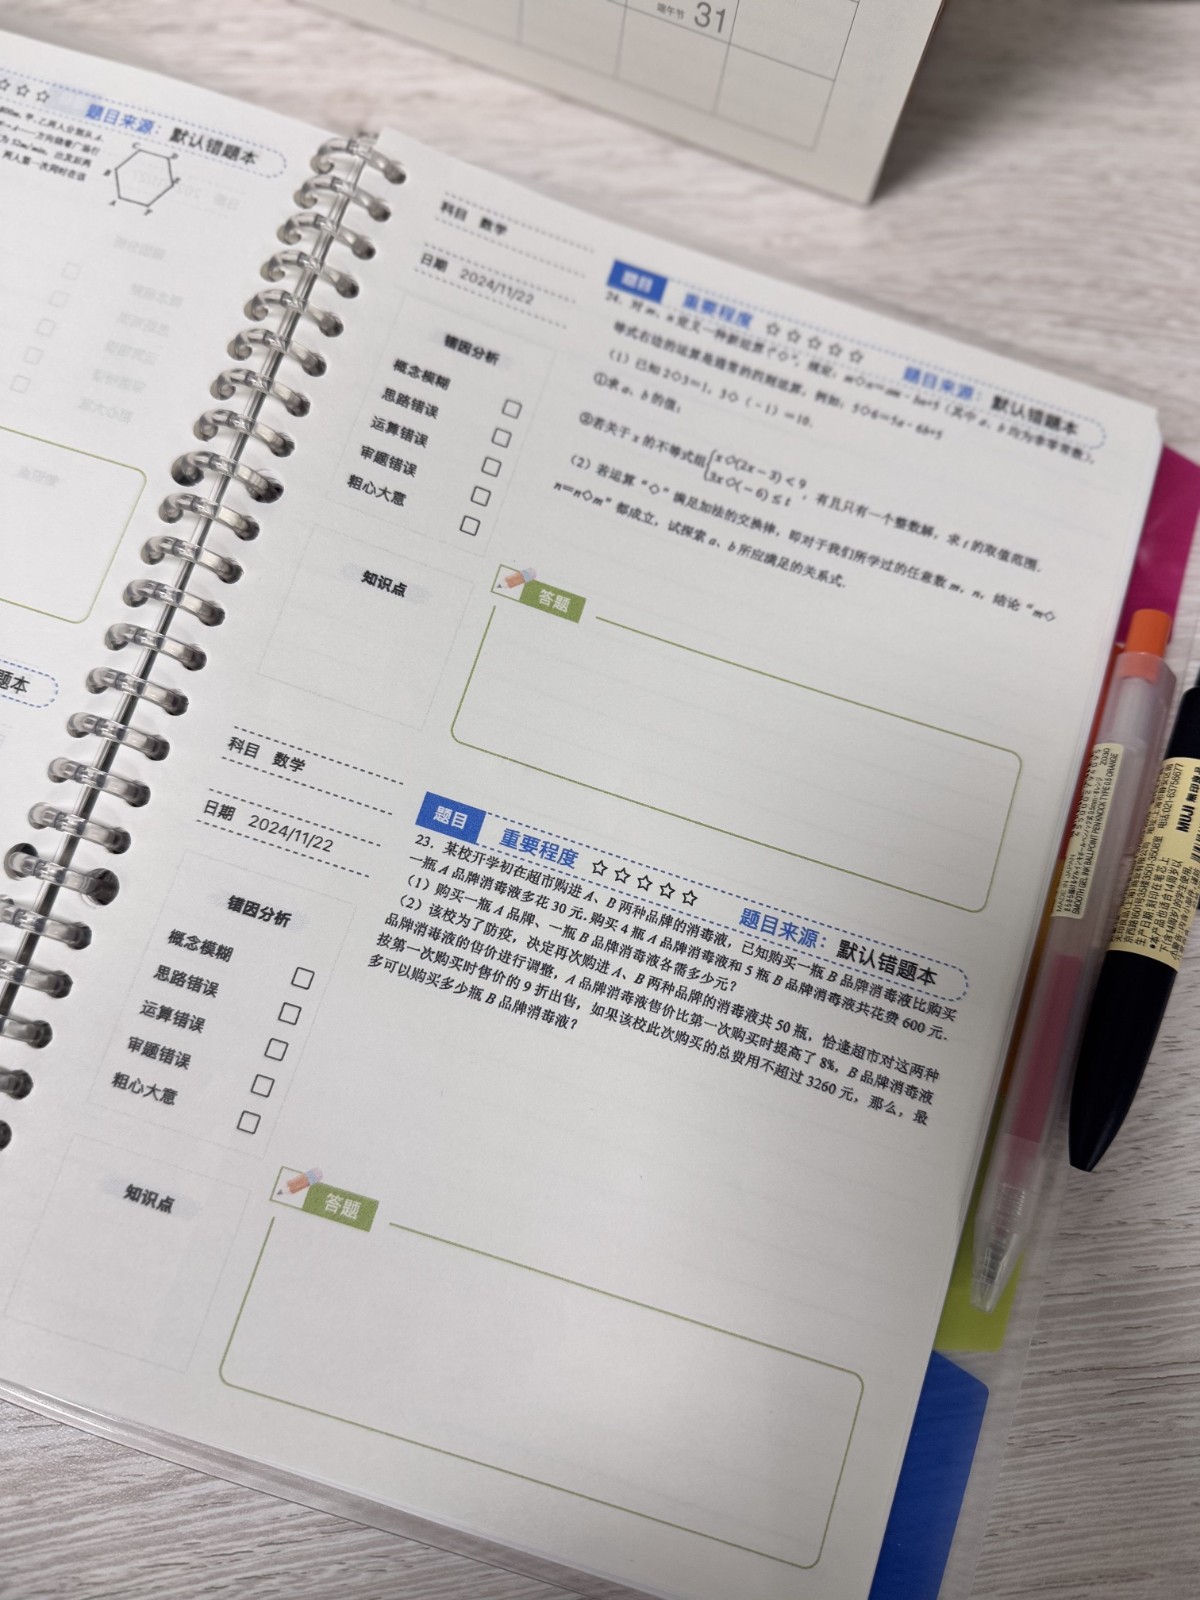 端午节 31
题目来源：默认错题本
科目 数学
日期 2024/11/22
错因分析
概念模糊
思路错误
运算错误
审题错误
粗心大意
知识点
题目 重要程度 ☆☆☆☆☆ 题目来源：默认错题本
等式右边的运算是通常的四则运算，例如：5◇6=5a-6b+5（其中 a、b 均为非零常数）．
（1）已知 2◇3=1，3◇（-1）=10．
①求 a、b 的值；
②若关于 x 的不等式组{x◇(2x-3)<9 3x◇(-6)≤t，有且只有一个整数解，求 t 的取值范围．
（2）若运算“◇”满足加法的交换律，即对于我们所学过的任意数 m，n，结论“m◇
n=n◇m”都成立，试探索 a、b 所应满足的关系式．
答题
科目 数学
日期 2024/11/22
错因分析
概念模糊
思路错误
运算错误
审题错误
粗心大意
知识点
题目 重要程度 ☆☆☆☆☆ 题目来源：默认错题本
23．某校开学初在超市购进 A、B 两种品牌的消毒液，已知购买一瓶 B 品牌消毒液比购买
一瓶 A 品牌消毒液多花 30 元．购买 4 瓶 A 品牌消毒液和 5 瓶 B 品牌消毒液共花费 600 元．
（1）购买一瓶 A 品牌、一瓶 B 品牌消毒液各需多少元？
（2）该校为了防疫，决定再次购进 A、B 两种品牌的消毒液共 50 瓶，恰逢超市对这两种
品牌消毒液的售价进行调整，A 品牌消毒液售价比第一次购买时提高了 8%，B 品牌消毒液
按第一次购买时售价的 9 折出售，如果该校此次购买的总费用不超过 3260 元，那么，最
多可以购买多少瓶 B 品牌消毒液？
答题
题本
SMOOTH GEL INK BALLPOINT PEN KNOCK TYPE 0.5 ORANGE
MUJI 無印良品
电话:021-63756677